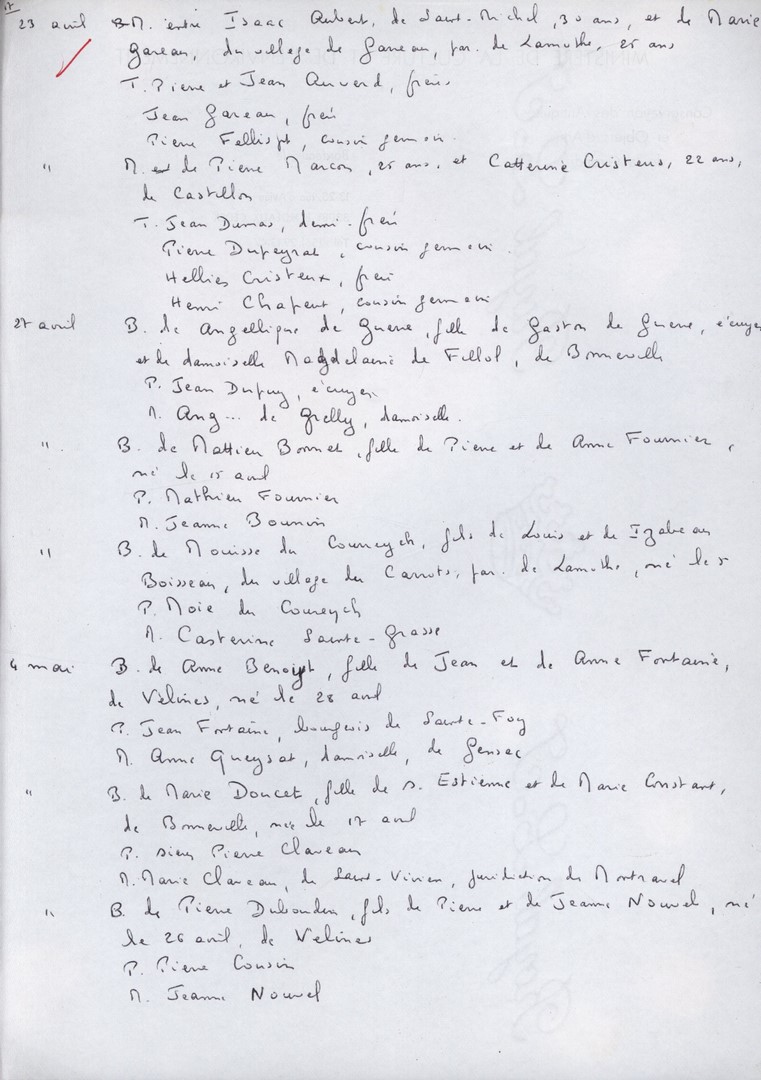 17
23 avril M. entre Isaac Aubert, de Saint-Michel, 30 ans, et de Marie
Gareau, du village de Gareau, par. de Lamothe, 25 ans
T. Pierre et Jean Auverd, frères
Jean Gareau, frère
Pierre, cousin germain.
" M. de Pierre Marcon, 25 ans, et Catterine Cristeus, 22 ans,
de Castillon
T. Jean Dumas, demi-frère
Pierre Dupeyrat, cousin germain.
Hellies Cristeux, frère
Henri Chapeut, cousin germain
27 avril B. de Angellique de Guerre, fille de Gaston de Guerre, écuyer
et de damoiselle Magdelaine de Fillol, de Bonneville
P. Jean Dupuy, écuyer
M. Ang... de Grelly, damoiselle.
" B. de Mattieu Bonnet, fille de Pierre et de Anne Fournier,
né le 15 avril
P. Mathieu Fournier
M. Jeanne Bounin
" B. de Mouisse du Courreych, fils de Louis et de Izabeau
Boisseau, du village des Carrots, par. de Lamothe, né le 5
P. Moie du Coureych
M. Casterine Sainte-Grasse
4 mai B. de Anne Benoist, fille de Jean et de Anne Fontaine,
de Vélines, né le 28 avril
P. Jean Fontaine, bourgeois de Sainte-Foy
M. Anne Queyssat, damoiselle, de Gensac
" B. de Marie Doucet, fille de s. Estienne et de Marie Constant,
de Bonneville, née le 17 avril
P. sieur Pierre Claveau
M. Marie Claveau, de Saint-Vivien, juridiction de Montravel
" B. de Pierre Duboudin, fils de Pierre et de Jeanne Nouvel, né
le 26 avril, de Vélines
P. Pierre Cousin
M. Jeanne Nouvel